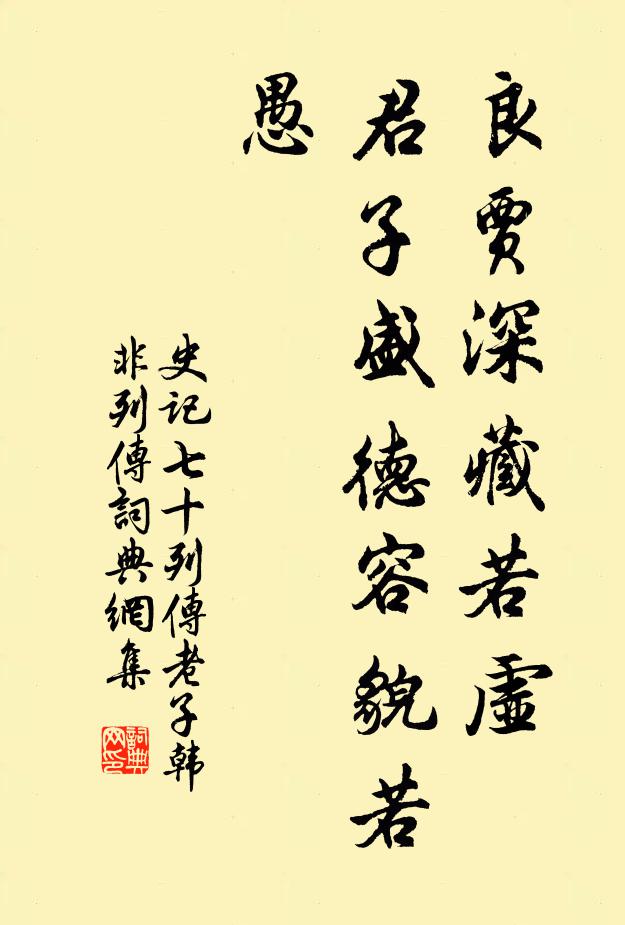 良賈深藏若虛
君子盛德容貌若
愚
史记七十列傳老子韩
非列傳詞典網集
詞典
网印